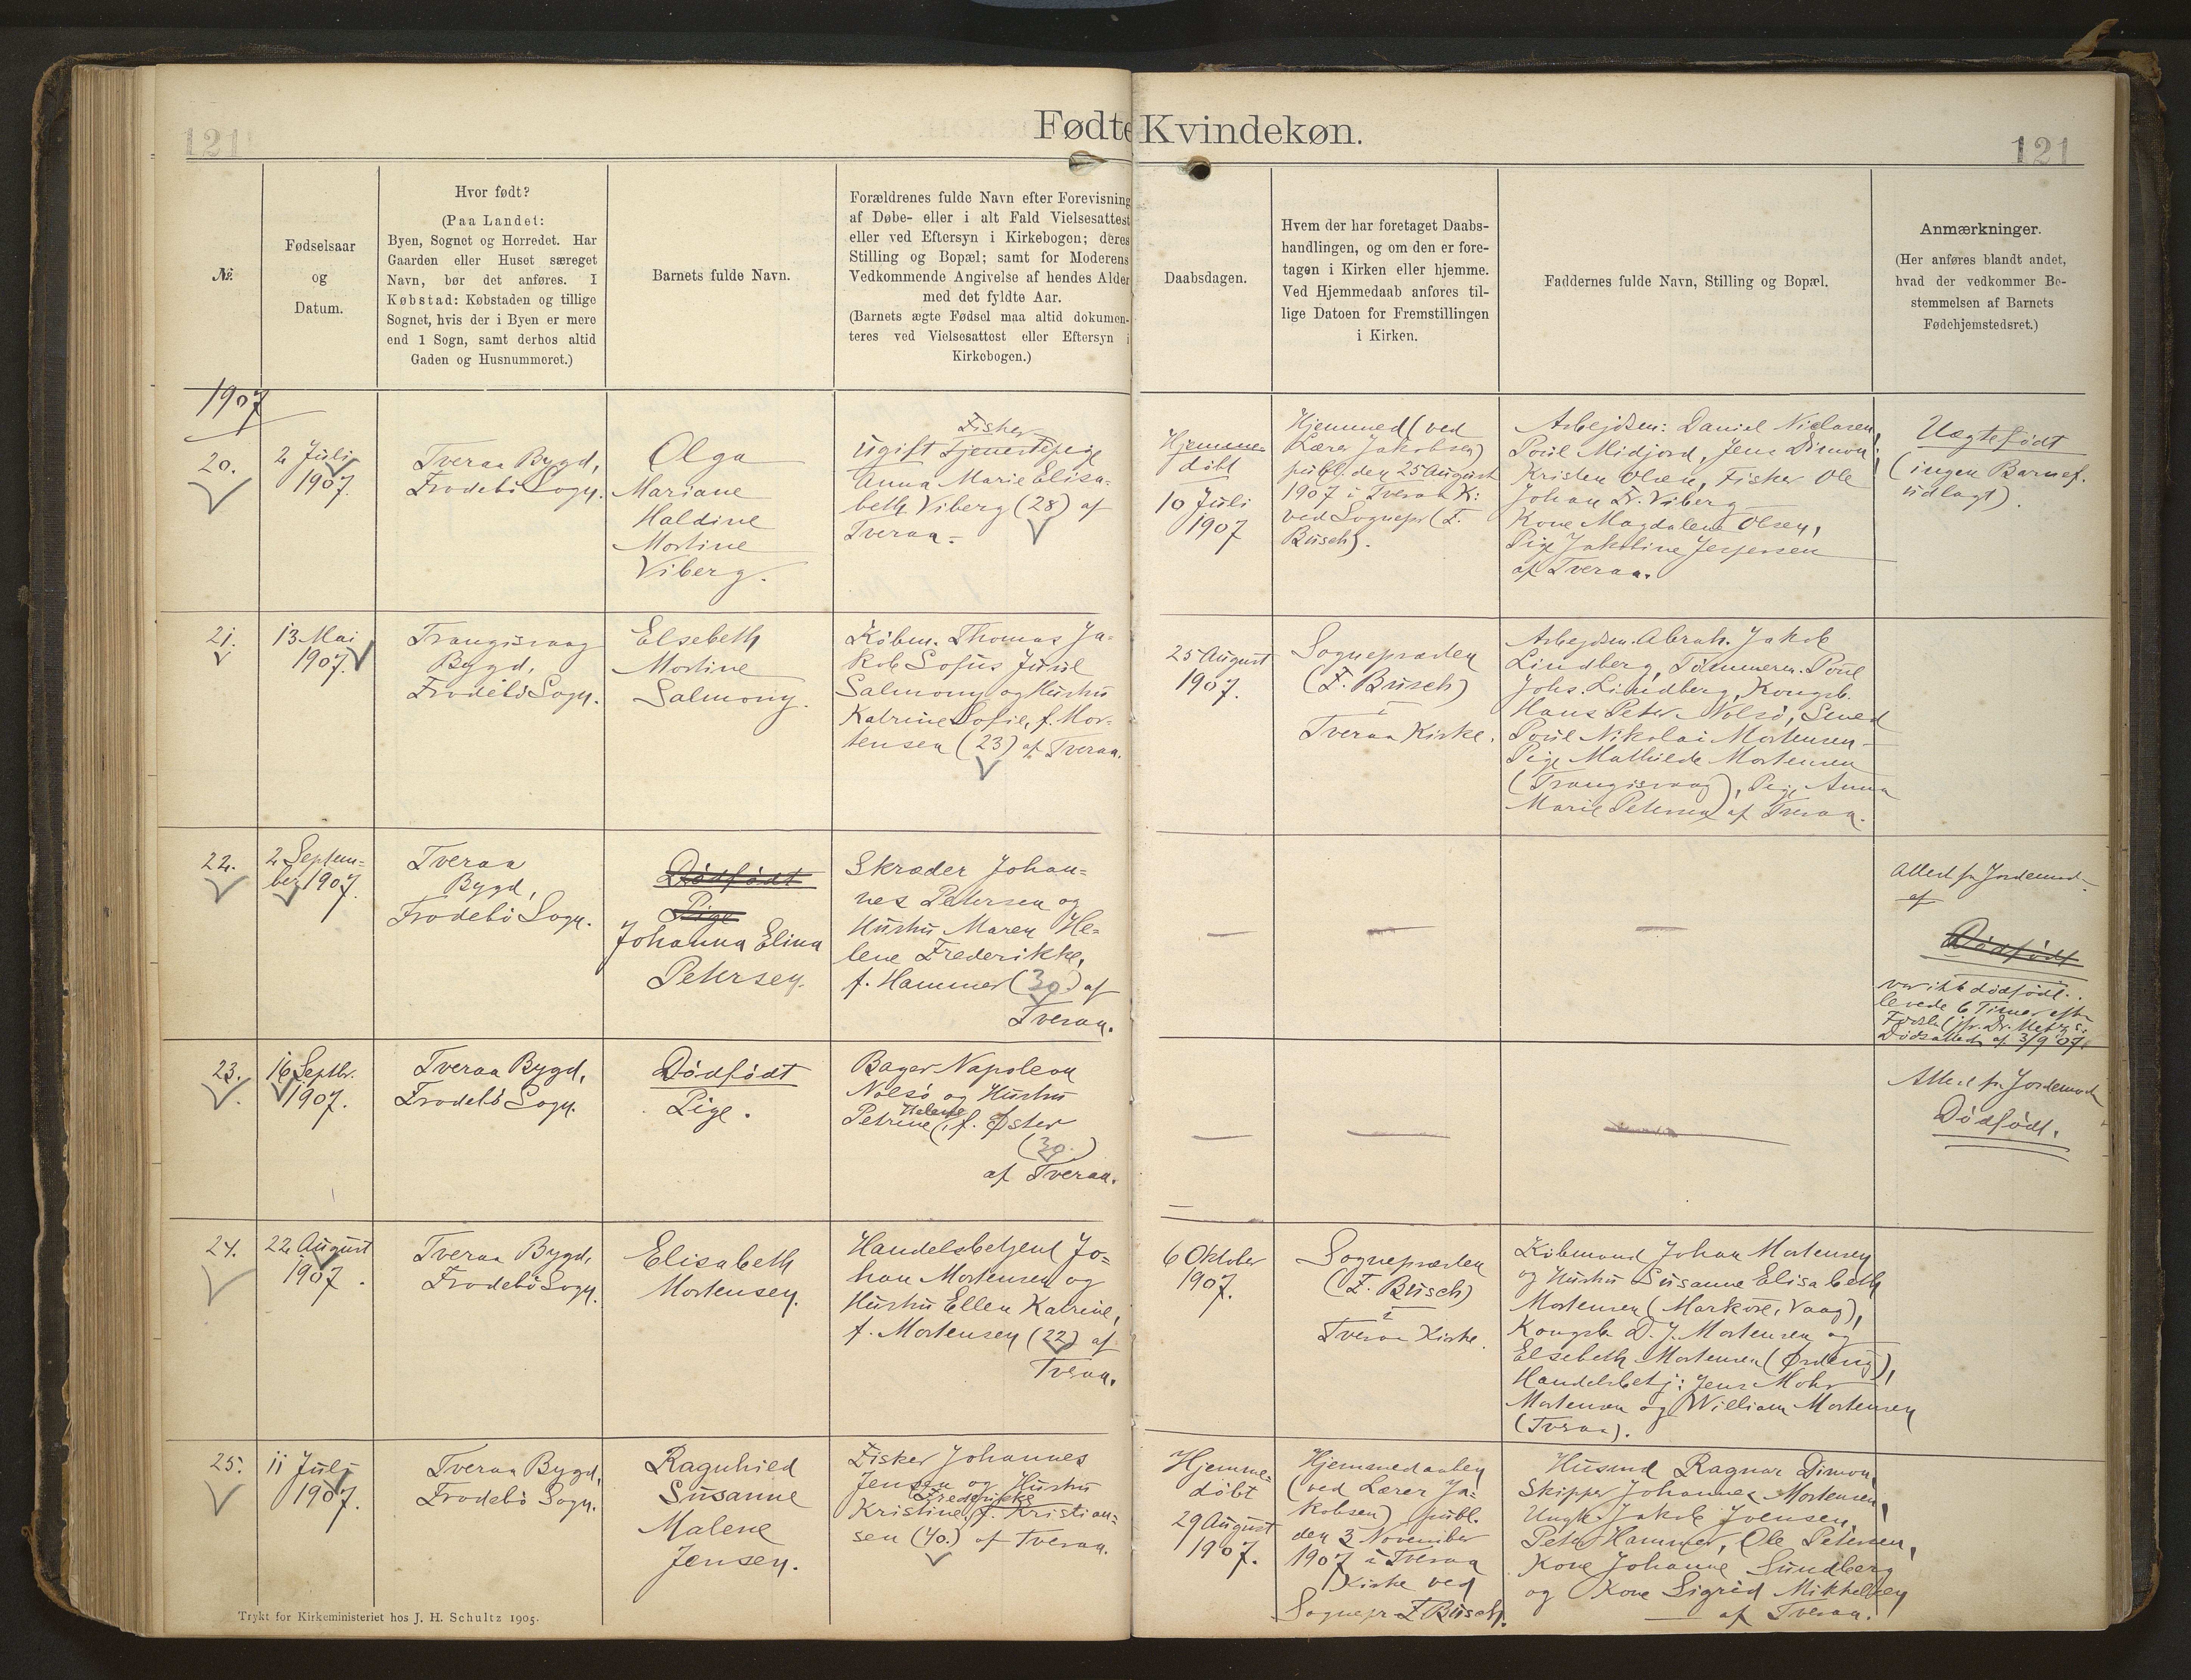 Fødte Kvindekøn.
121
121
№
Fødselsaar
og
Datum.
Hvor født?
(Paa Landet:
Byen, Sognet og Herredet. Har
Gaarden eller Huset særeget
Navn, bør det anføres. I
Købstad: Købstaden og tillige
Sognet, hvis der i Byen er mere
end 1 Sogn, samt derhos altid
Gaden og Husnummeret.)
Barnets fulde Navn.
Forældrenes fulde Navn efter Forevisning
af Døbe- eller i alt Fald Vielsesattest
eller ved Eftersyn i Kirkebogen; deres
Stilling og Bopæl; samt for Moderens
Vedkommende Angivelse af hendes Alder
med det fyldte Aar.
(Barnets ægte Fødsel maa altid dokumen-
teres ved Vielsesattest eller Eftersyn i
Kirkebogen.)
Daabsdagen.
Hvem der har foretaget Daabs-
handlingen, og om den er fore-
tagen i Kirken eller hjemme.
Ved Hjemmedaab anføres til-
lige Datoen for Fremstillingen
i Kirken.
Faddernes fulde Navn, Stilling og Bopæl.
Anmærkninger.
(Her anføres blandt andet,
hvad der vedkommer Be-
stemmelsen af Barnets
Fødehjemstedsret.)
1907
20.
2 Juli
1907.
Tveraa Bygd,
Frodebö Sogn.
Olga
Mariane
Haldine
Mortine
Viberg.
Fisker
ugift Tjenestepige
Anna Marie Elisa-
beth Viberg (28) af
Tveraa.
Hjemme-
döbt
10 Juli
1907
Hjemmed (ved
Lærer Jakobsen)
publ. den 25 August
1907 i Tveraa K:
ved Sognepr (F.
Busch).
Arbejdsm: Daniel Niclasen,
Poul Midjord, Jens Dimon,
Kristen Olsen, Fisker Ole
Johan Fr. Viberg
Kone Magdalene Olsen,
Pige Jakobine Jespersen
af Tveraa.
Uægtefödt
(ingen Barnef.
udlagt).
21.
13 Mai
1907.
Trangisvaag
Bygd,
Frodebö Sogn.
Elsebeth
Mortine
Salmony.
Köbm. Thomas Ja-
kob Sofus Juul
Salmony og Hustru
Katrine Sofie, f. Mor-
tensen (23) af Tveraa.
25 August
1907.
Sognepræsten
(F. Busch)
i
Tveraa Kirke.
Arbejdsm. Abrah. Jakob
Lindberg, Tömmerm. Poul
Johs. Lindberg, Kongsb.
Hans Peter Nolsö, Smed
Poul Nikolai Mortensen
Pige Mathilde Mortensen
(Trangisvaag), Pige Anna
Marie Petersen af Tveraa.
22.
2 Septem-
ber 1907.
Tveraa
Bygd,
Frodebö Sogn.
Dödfödt
Pige
Johanna Elina
Petersen.
Skræder Johan-
nes Petersen og
Hustru Maren He-
lene Frederikke,
f. Hammer (30) af
Tveraa.
Attest fr Jordemod-
Dödfödt
var ikke dödfödt.
levede 6 Timer efter
Dödsattest af 3/9 07.
23.
16 Septbr.
1907.
Tveraa Bygd,
Frodebö Sogn.
Dödfödt
Pige.
Bager Napoleon
Nolsö og Hustru
Petrine Helene, f. Øster
(30.)
af Tveraa.
Attest fr Jordemod
Dödfödt.
24.
22 August
1907.
Tveraa Bygd,
Frodebö Sogn.
Elisabeth
Mortensen.
Handelsbetjent Jo-
han Mortensen og
Hustru Ellen Katrine,
f. Mortensen (22) af
Tveraa.
6 Oktober
1907.
Sognepræsten
(F. Busch)
i
Tveraa Kirke.
Köbmand Johan Mortensen
og Hustru Susanne Elisabeth
Mortensen (Vaag),
Kongsb. D. J. Mortensen og
Elsebeth Mortensen (Ørdevig),
Handelsbetj: Jens Mohr
Mortensen og William Mortensen
(Tveraa).
25.
11 Juli
1907.
Tveraa Bygd,
Frodebö Sogn.
Ragnhild
Susanne
Malene
Jensen.
Fisker Johannes
Jensen og Hustru
Frederikke
Kristine, f. Kristian-
sen (40.) af Tveraa.
Hjemme-
döbt
29 August
1907.
Hjemmedaaben
(ved Lærer Ja-
kobsen) publ.
den 3 November
1907 i Tveraa
Kirke ved
Sognepr F. Busch.
Husmd Ragnar Dimon,
Skipper Johannes Mortensen,
Ungk. Jakob Joensen,
Peter Hammer, Ole Petersen,
Kone Johanne Lundberg
og Kone Sigrid Mikkelsen
af Tveraa.
Trykt for Kirkeministeriet hos J. H. Schultz 1905.